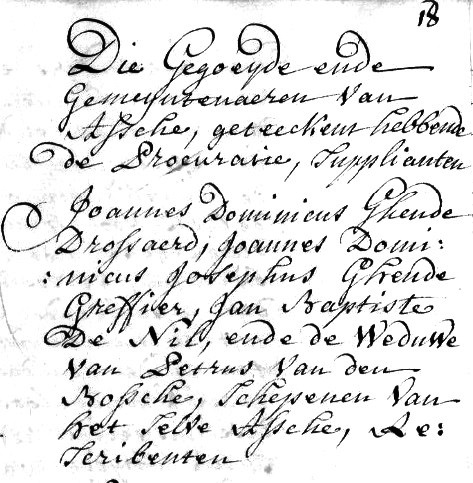 18
Die Gegoeyde ende
Gemeyntenaeren Van
Assche, geteeckent hebbende
de Procuratie, Supplianten
Joannes Dominicus Ghende
Drossaerd, Joannes Domi:
:nicus Josephus Ghende
Greffier, Jan Baptiste
De Nil, ende de Weduwe
Van Petrus Van den
Bossche, Schepenen Van
het Selve Assche, Re:
Scribenten